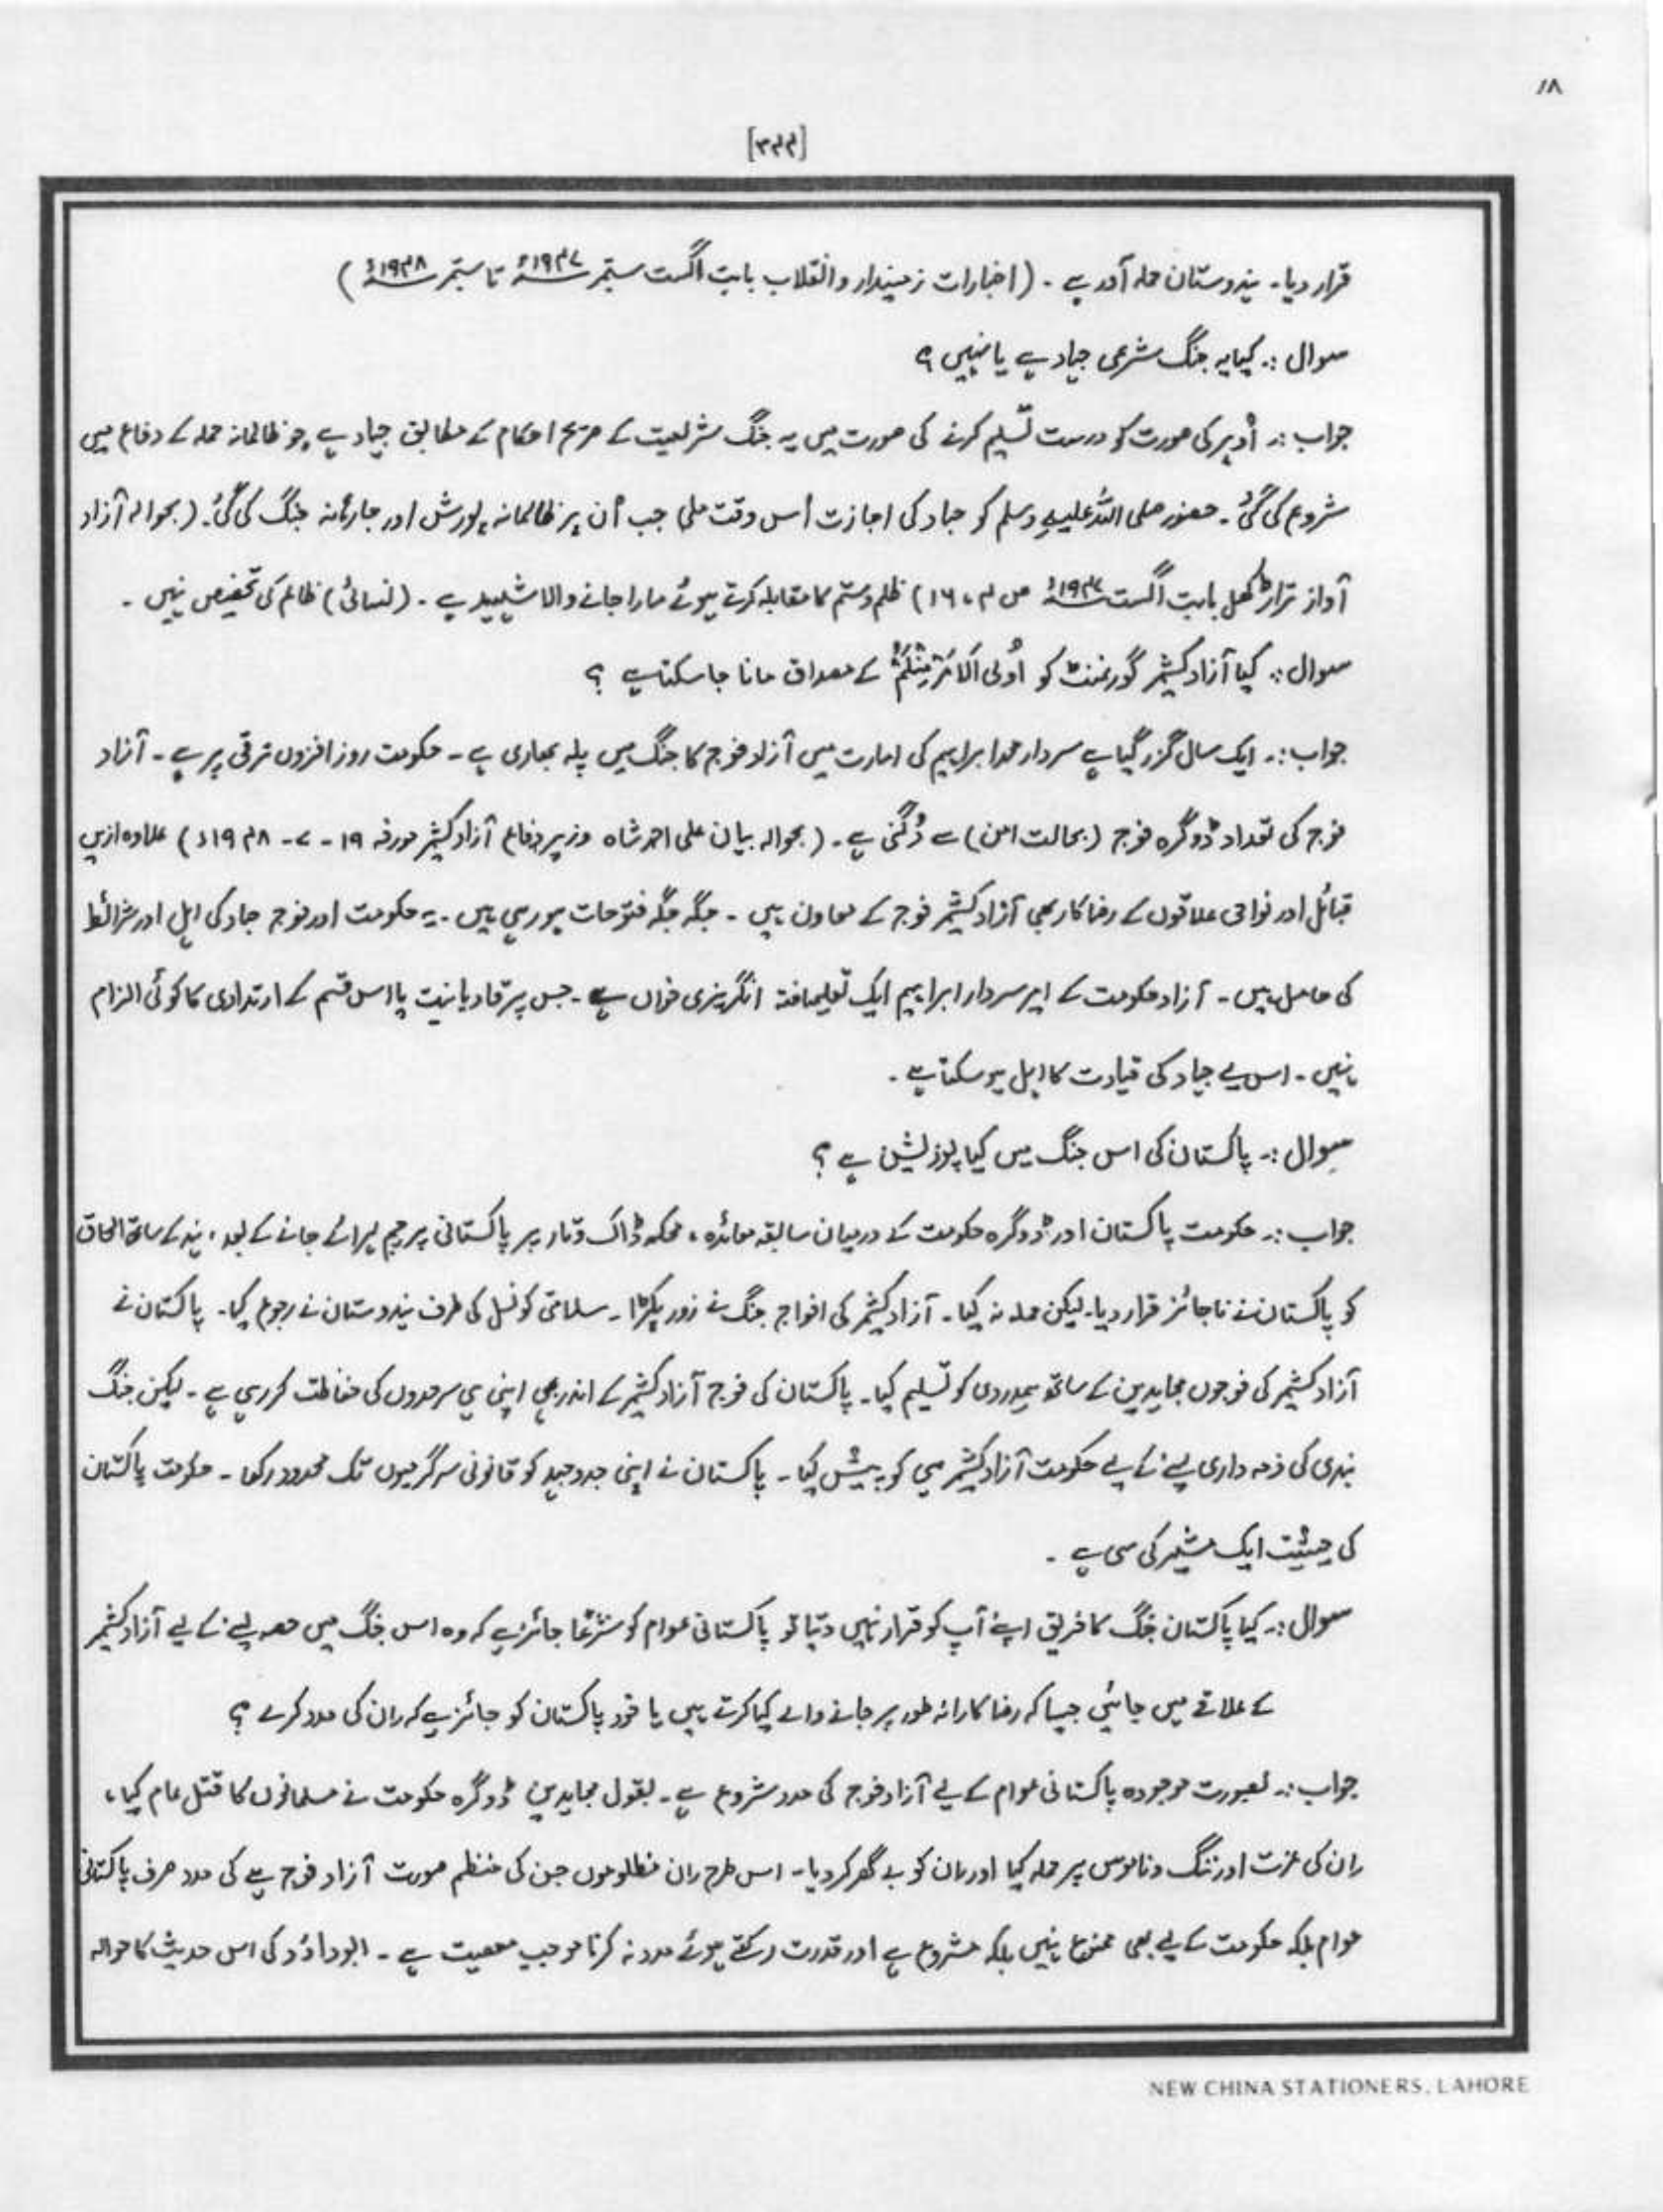 ۱۸
[۳۴۴]
قرار دیا۔ ہندوستان حملہ آور ہے ۔ (اخبارات زمیندار و انقلاب بابت اگست ستمبر ۱۹۴۷ء تا ستمبر ۱۹۴۸ء)
سوال :۔ کیا یہ جنگ شرعی جہاد ہے یا نہیں ؟
جواب :۔ اُوپر کی صورت کو درست تسلیم کرنے کی صورت میں یہ جنگ شریعت کے صریح احکام کے مطابق جہاد ہے جو ظالمانہ حملہ کے دفاع میں
شروع کی گئی ۔ حضور صلی اللہ علیہ وسلم کو جہاد کی اجازت اُس وقت ملی جب اُن پر ظالمانہ یورش اور جارحانہ جنگ کی گئی۔ (بحوالہ آزاد
آواز تراڑکھل بابت اگست ۱۹۴۷ء ص ۴ ، ۱۶) ظلم و ستم کا مقابلہ کرتے ہوئے مارا جانے والا شہید ہے ۔ (نسائی) ظالم کی تخصیص نہیں ۔
سوال :۔ کیا آزاد کشمیر گورنمنٹ کو اُولی الْاَمْرِ مِنْکُمْ کے مصداق مانا جا سکتا ہے ؟
جواب :۔ ایک سال گزر گیا ہے سردار محمد ابراہیم کی امارت میں آزاد فوج کا جنگ میں پلہ بھاری ہے ۔ حکومت روز افزوں ترقی پر ہے ۔ آزاد
فوج کی تعداد ڈوگرہ فوج (بحالت امن) سے دُگنی ہے ۔ (بحوالہ بیان علی احمد شاہ وزیر دفاع آزاد کشمیر مورخہ ۱۹ - ۷ - ۱۹۴۸ء) علاوہ ازیں
قبائل اور نواحی علاقوں کے رضا کار بھی آزاد کشمیر فوج کے معاون ہیں ۔ جگہ جگہ فتوحات ہو رہی ہیں ۔ یہ حکومت اور فوج جہاد کی اہل اور شرائط
کی حامل ہیں ۔ آزاد حکومت کے امیر سردار ابراہیم ایک تعلیمافتہ انگریزی خواں ہے ۔ جس پر قادیانیت یا اس قسم کے ارتدادی کا کوئی الزام
نہیں ۔ اس لیے جہاد کی قیادت کا اہل ہو سکتا ہے ۔
سوال :۔ پاکستان کی اس جنگ میں کیا پوزیشن ہے ؟
جواب :۔ حکومت پاکستان اور ڈوگرہ حکومت کے درمیان سابقہ معائدہ ، محکمہ ڈاک و تار پر پاکستانی پرچم لہرائے جانے کے بعد ، ہند کے ساتھ الحاق
کو پاکستان نے ناجائز قرار دیا۔ لیکن حملہ نہ کیا ۔ آزاد کشمیر کی افواج جنگ نے زور پکڑا ۔ سلامتی کونسل کی طرف ہندوستان نے رجوع کیا ۔ پاکستان نے
آزاد کشمیر کی فوجوں مجاہدین کے ساتھ ہمدردی کو تسلیم کیا ۔ پاکستان کی فوج آزاد کشمیر کے اندر بھی اپنی ہی سرحدوں کی حفاظت کر رہی ہے ۔ لیکن جنگ
بندی کی ذمہ داری لینے کے لیے حکومت آزاد کشمیر ہی کو پیش کیا ۔ پاکستان نے اپنی جدوجہد کو قانونی سرگرمیوں تک محدود رکھا ۔ حکومت پاکستان
کی حیثیت ایک مشیر کی سی ہے ۔
سوال :۔ کیا پاکستان جنگ کا فریق اپنے آپ کو قرار نہیں دیتا تو پاکستانی عوام کو شرعًا جائز ہے کہ وہ اس جنگ میں حصہ لینے کے لیے آزاد کشمیر
کے علاقے میں جائیں جیسا کہ رضا کارانہ طور پر جانے والے کیا کرتے ہیں یا خود پاکستان کو جائز ہے کہ ان کی مدد کرے ؟
جواب :۔ بصورت موجودہ پاکستانی عوام کے لیے آزاد فوج کی مدد مشروع ہے ۔ بقول مجاہدین ڈوگرہ حکومت نے مسلمانوں کا قتل عام کیا ،
ان کی عزت اور ننگ و ناموس پر حملہ کیا اور ان کو بے گھر کر دیا ۔ اس طرح ان مظلوموں جن کی منظم صورت آزاد فوج ہے کی مدد صرف پاکستانی
عوام بلکہ حکومت کے لیے بھی ممنوع نہیں بلکہ مشروع ہے اور قدرت رکھتے ہوئے مدد نہ کرنا موجب معصیت ہے ۔ ابوداؤد کی اس حدیث کا حوالہ
NEW CHINA STATIONERS, LAHORE